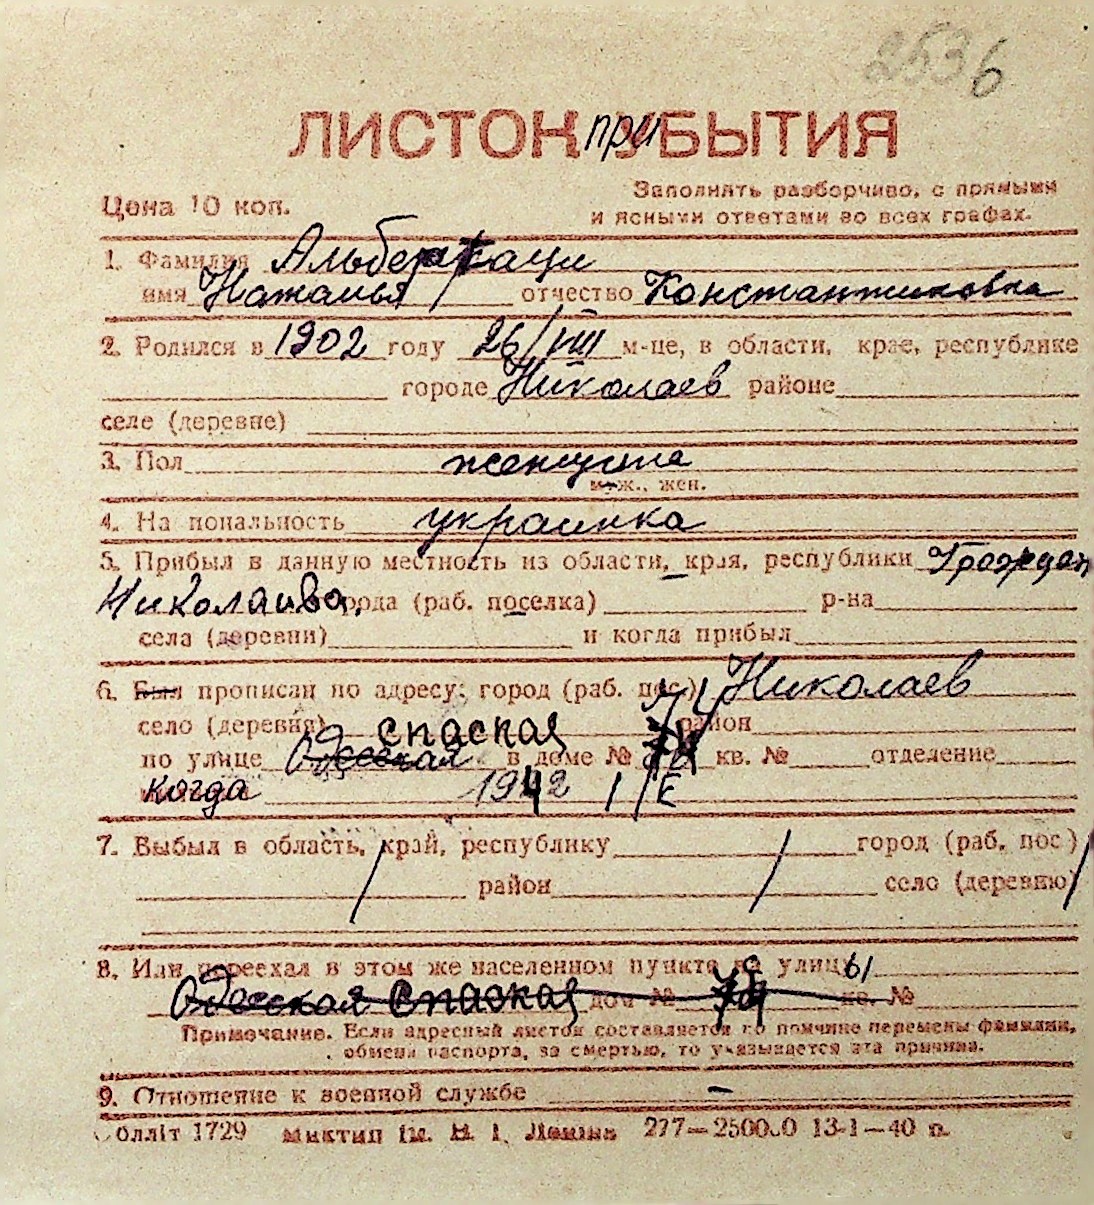 2536
ЛИСТОК при УБЫТИЯ
Цена 10 коп.
Заполнять разборчиво, с прямыми
и ясными ответами во всех графах.
1. Фамилия
имя Наталья отчество Константиновна
2. Родился в 1902 году 26/VIII м-це, в области, крае, республике
городе Николаев районе
селе (деревне)
3. Пол женщина
муж., жен.
4. Национальность украинка
5. Прибыл в данную местность из области, края, республики Граждан
Николаива города (раб. поселка) р-на
села (деревни) и когда прибыл
6. Был прописан по адресу: город (раб. пос.) Николаев
село (деревня) спаская район
по улице Одесская в доме № кв. № отделение
когда 1942 1/
7. Выбыл в область, край, республику город (раб. пос.)
район село (деревню)
8. Или переехал в этом же населенном пункте на улицу 61
Одесская Спаская дом № кв. №
Примечание. Если адресный листок составляется по причине перемены фамилии,
обмена паспорта, за смертью, то указывается эта причина.
9. Отношение к военной службе –
Облліт 1729 Миктип ім. В. І. Леніна 277—250000 13-1—40 п.